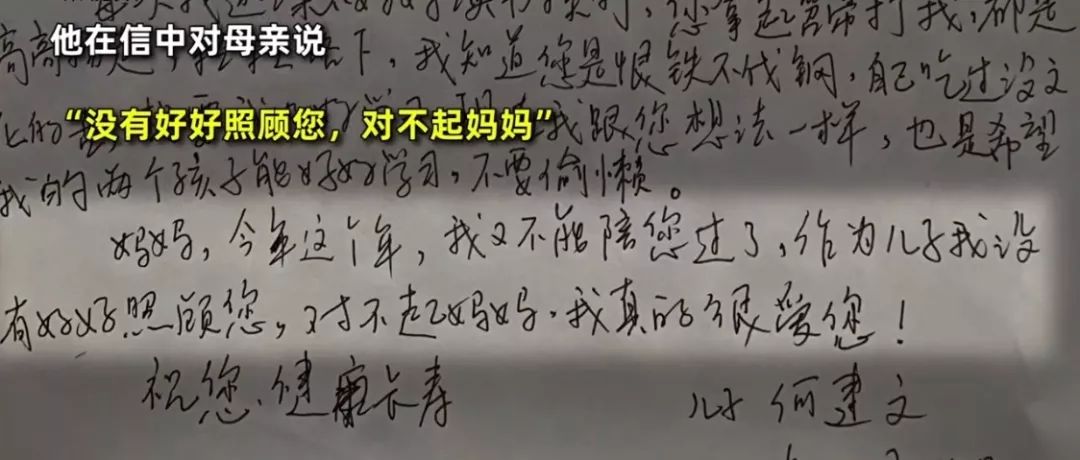 他在信中对母亲说
“没有好好照顾您，对不起妈妈”
您拿起（）打我，都是
下，我知道您是恨铁不成钢，自己吃过没文
我跟您想法一样，也是希望
我的两个孩子能好好学习，不要偷懒。
妈妈，今年这个年，我又不能陪您过了，作为儿子我没
有好好照顾您，对不起妈妈，我真的很爱您！
祝您、健康长寿
儿子 何建文